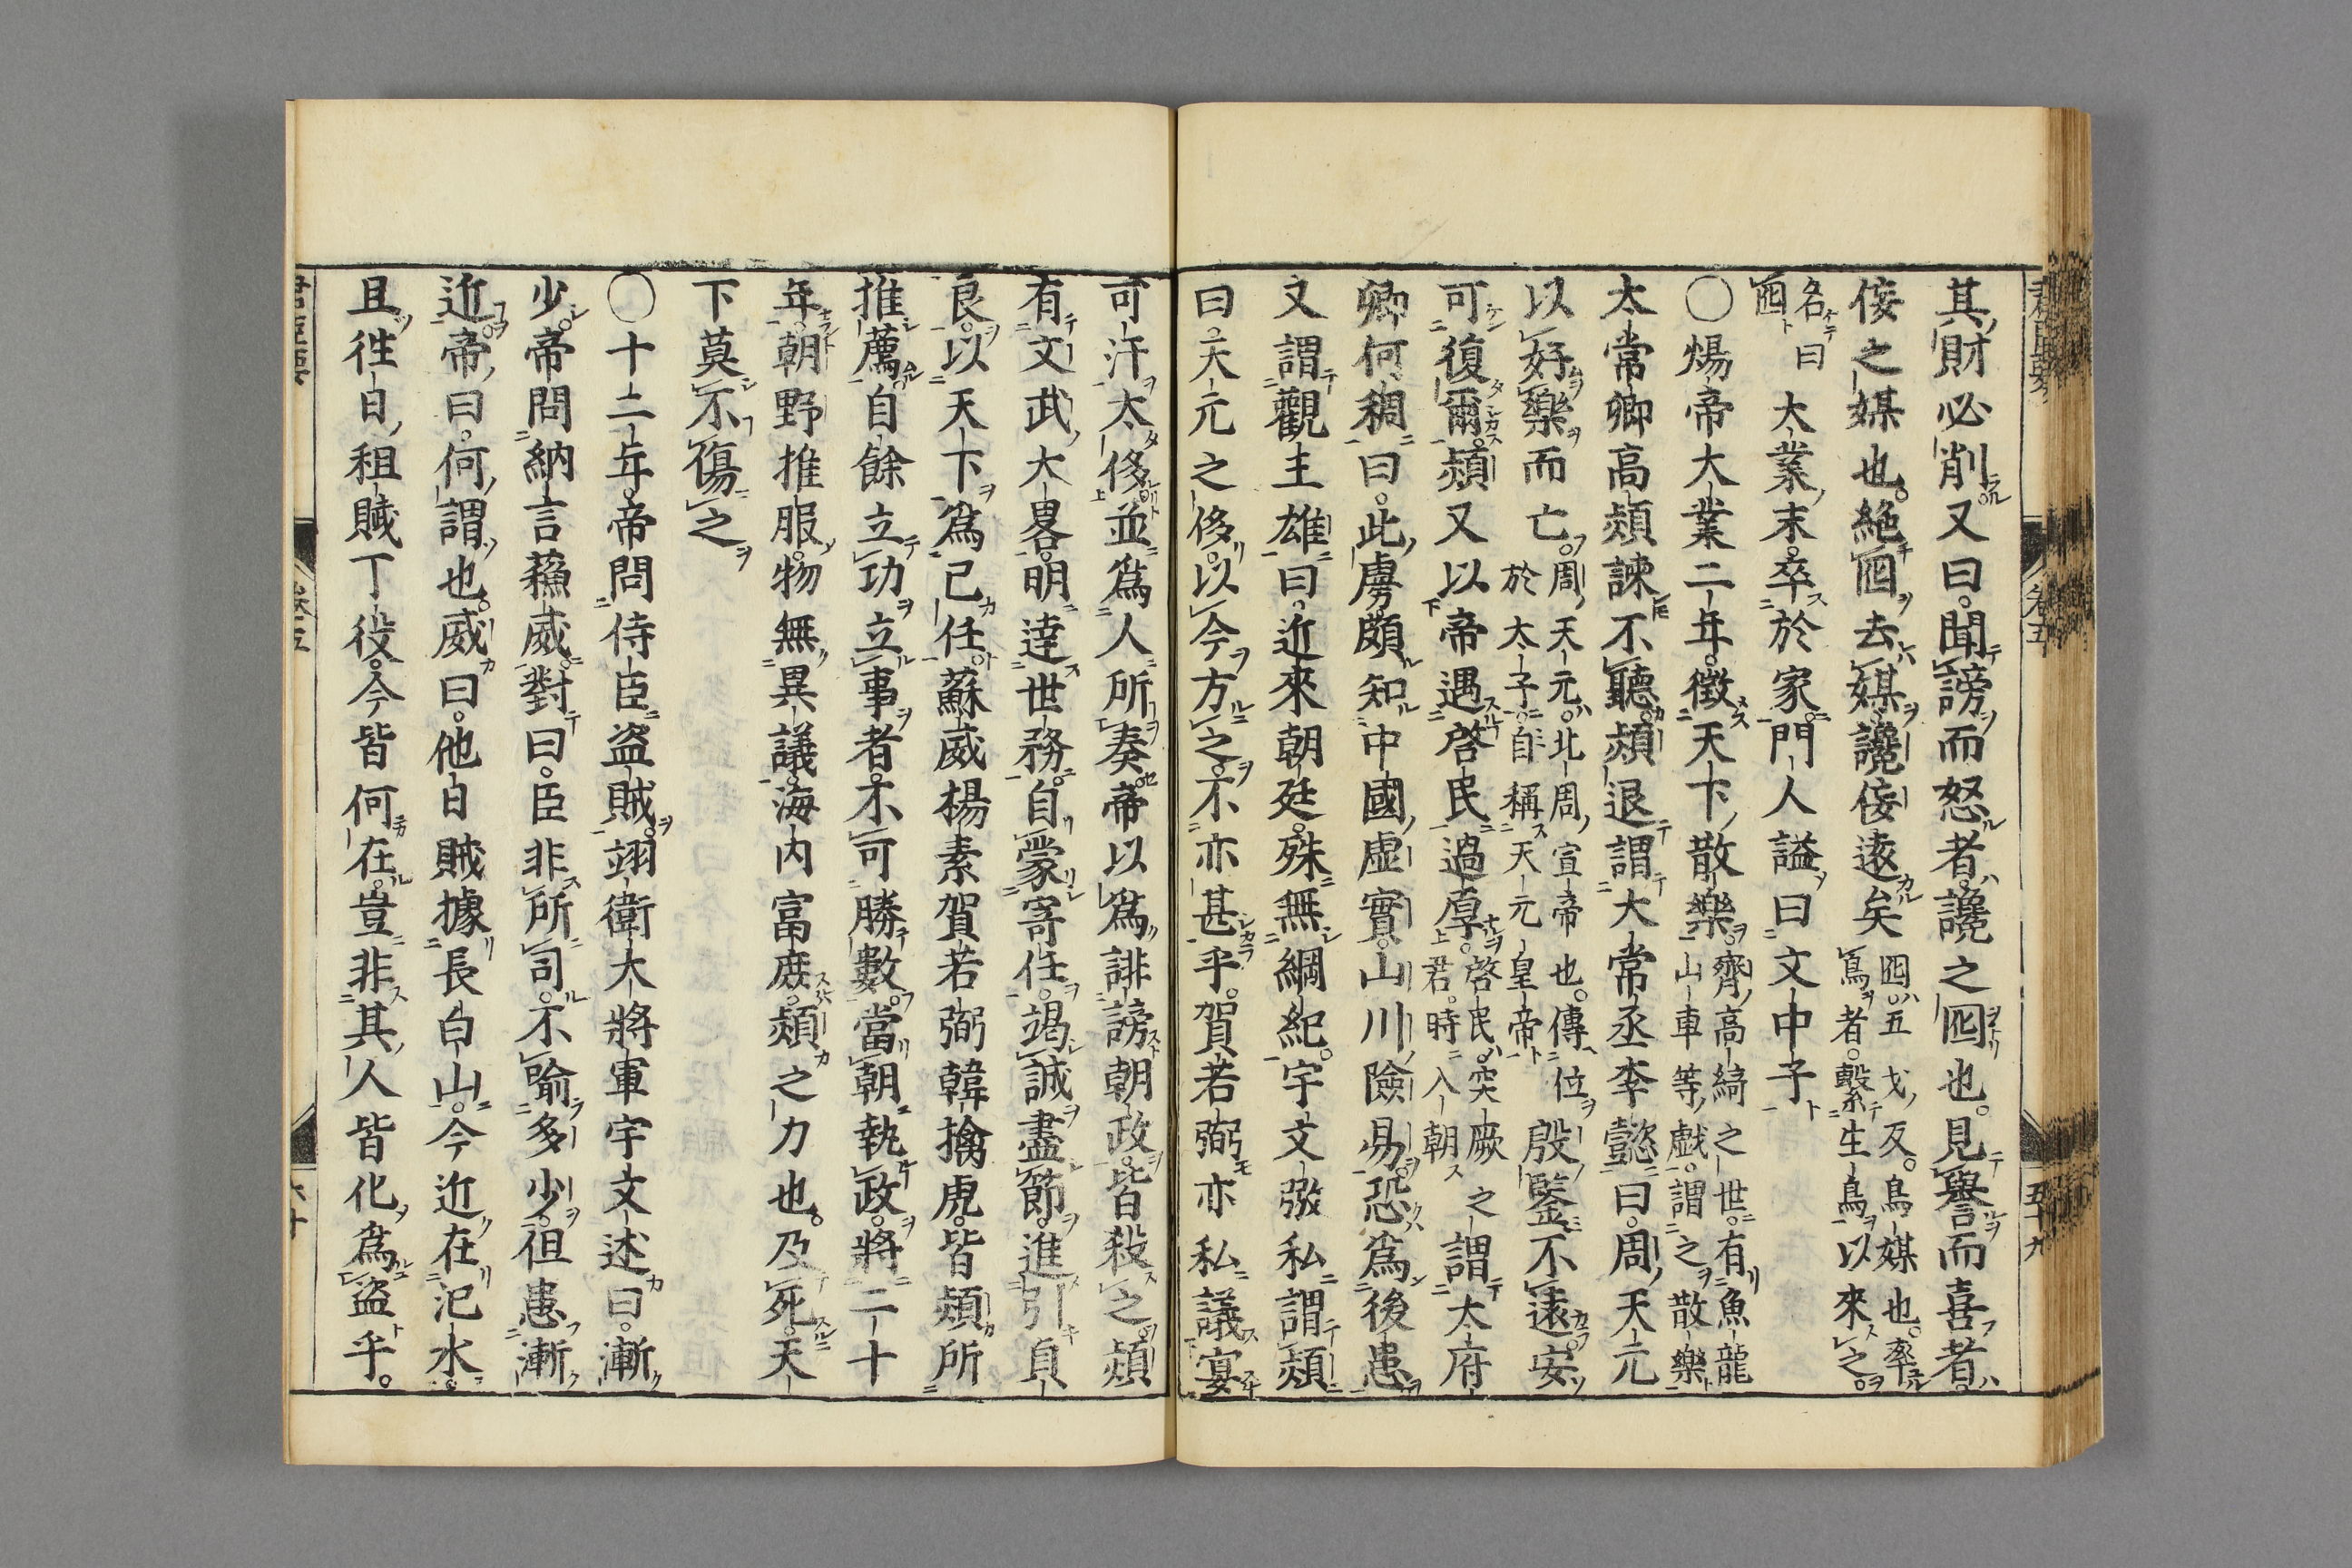 其財必削又曰。聞謗而怒者。讒之囮也。見譽而喜者。
佞之媒也。絶囮去媒。讒佞遠矣囮。五戈反。鳥媒也。率鳥者。繫生鳥以來之。
名曰囮大業末。卒於家。門人謚曰文中子
〇煬帝大業二年。徴天下散樂。齊高綺之世。有魚龍山車等戯。謂之散樂
太常卿高熲諫不聽。熲退謂大常丞李懿曰。周天元
以好樂而亡。周天元。北周宣帝也。傳位於太子。自稱天元皇帝殷鑒不遠。安
可復爾。熲又以帝遇啓民過厚。啓民。突厥之君。時入朝謂太府
卿何稠曰。此虜頗知中國虚實。山川險易。恐爲後患
又謂觀王雄曰。近來朝廷。殊無綱紀。宇文弢私謂熲
曰。天元之侈。以今方之。不亦甚乎。賀若弼亦私議宴
可汗太侈。並爲人所奏。帝以爲誹謗朝政。皆殺之。熲
有文武大畧。明達世務。自蒙寄任。竭誠盡節。進引貞
良。以天下爲己任。蘇威楊素賀若弼韓擒虎。皆熲所
推薦。自餘立功立事者。不可勝數。當朝執政。將二十
年。朝野推服。物無異議。海内富庶。熲之力也。及死。天
下莫不傷之
〇十二年。帝問侍臣盗賊。翊衛大將軍宇文述曰。漸
少。帝問納言蘓威。對曰。臣非所司。不喩多少。但患漸
近。帝曰。何謂也。威曰。他日賊據長白山。今近在汜水。
且往日租賦丁役。今皆何在。豈非其人皆化爲盗乎。